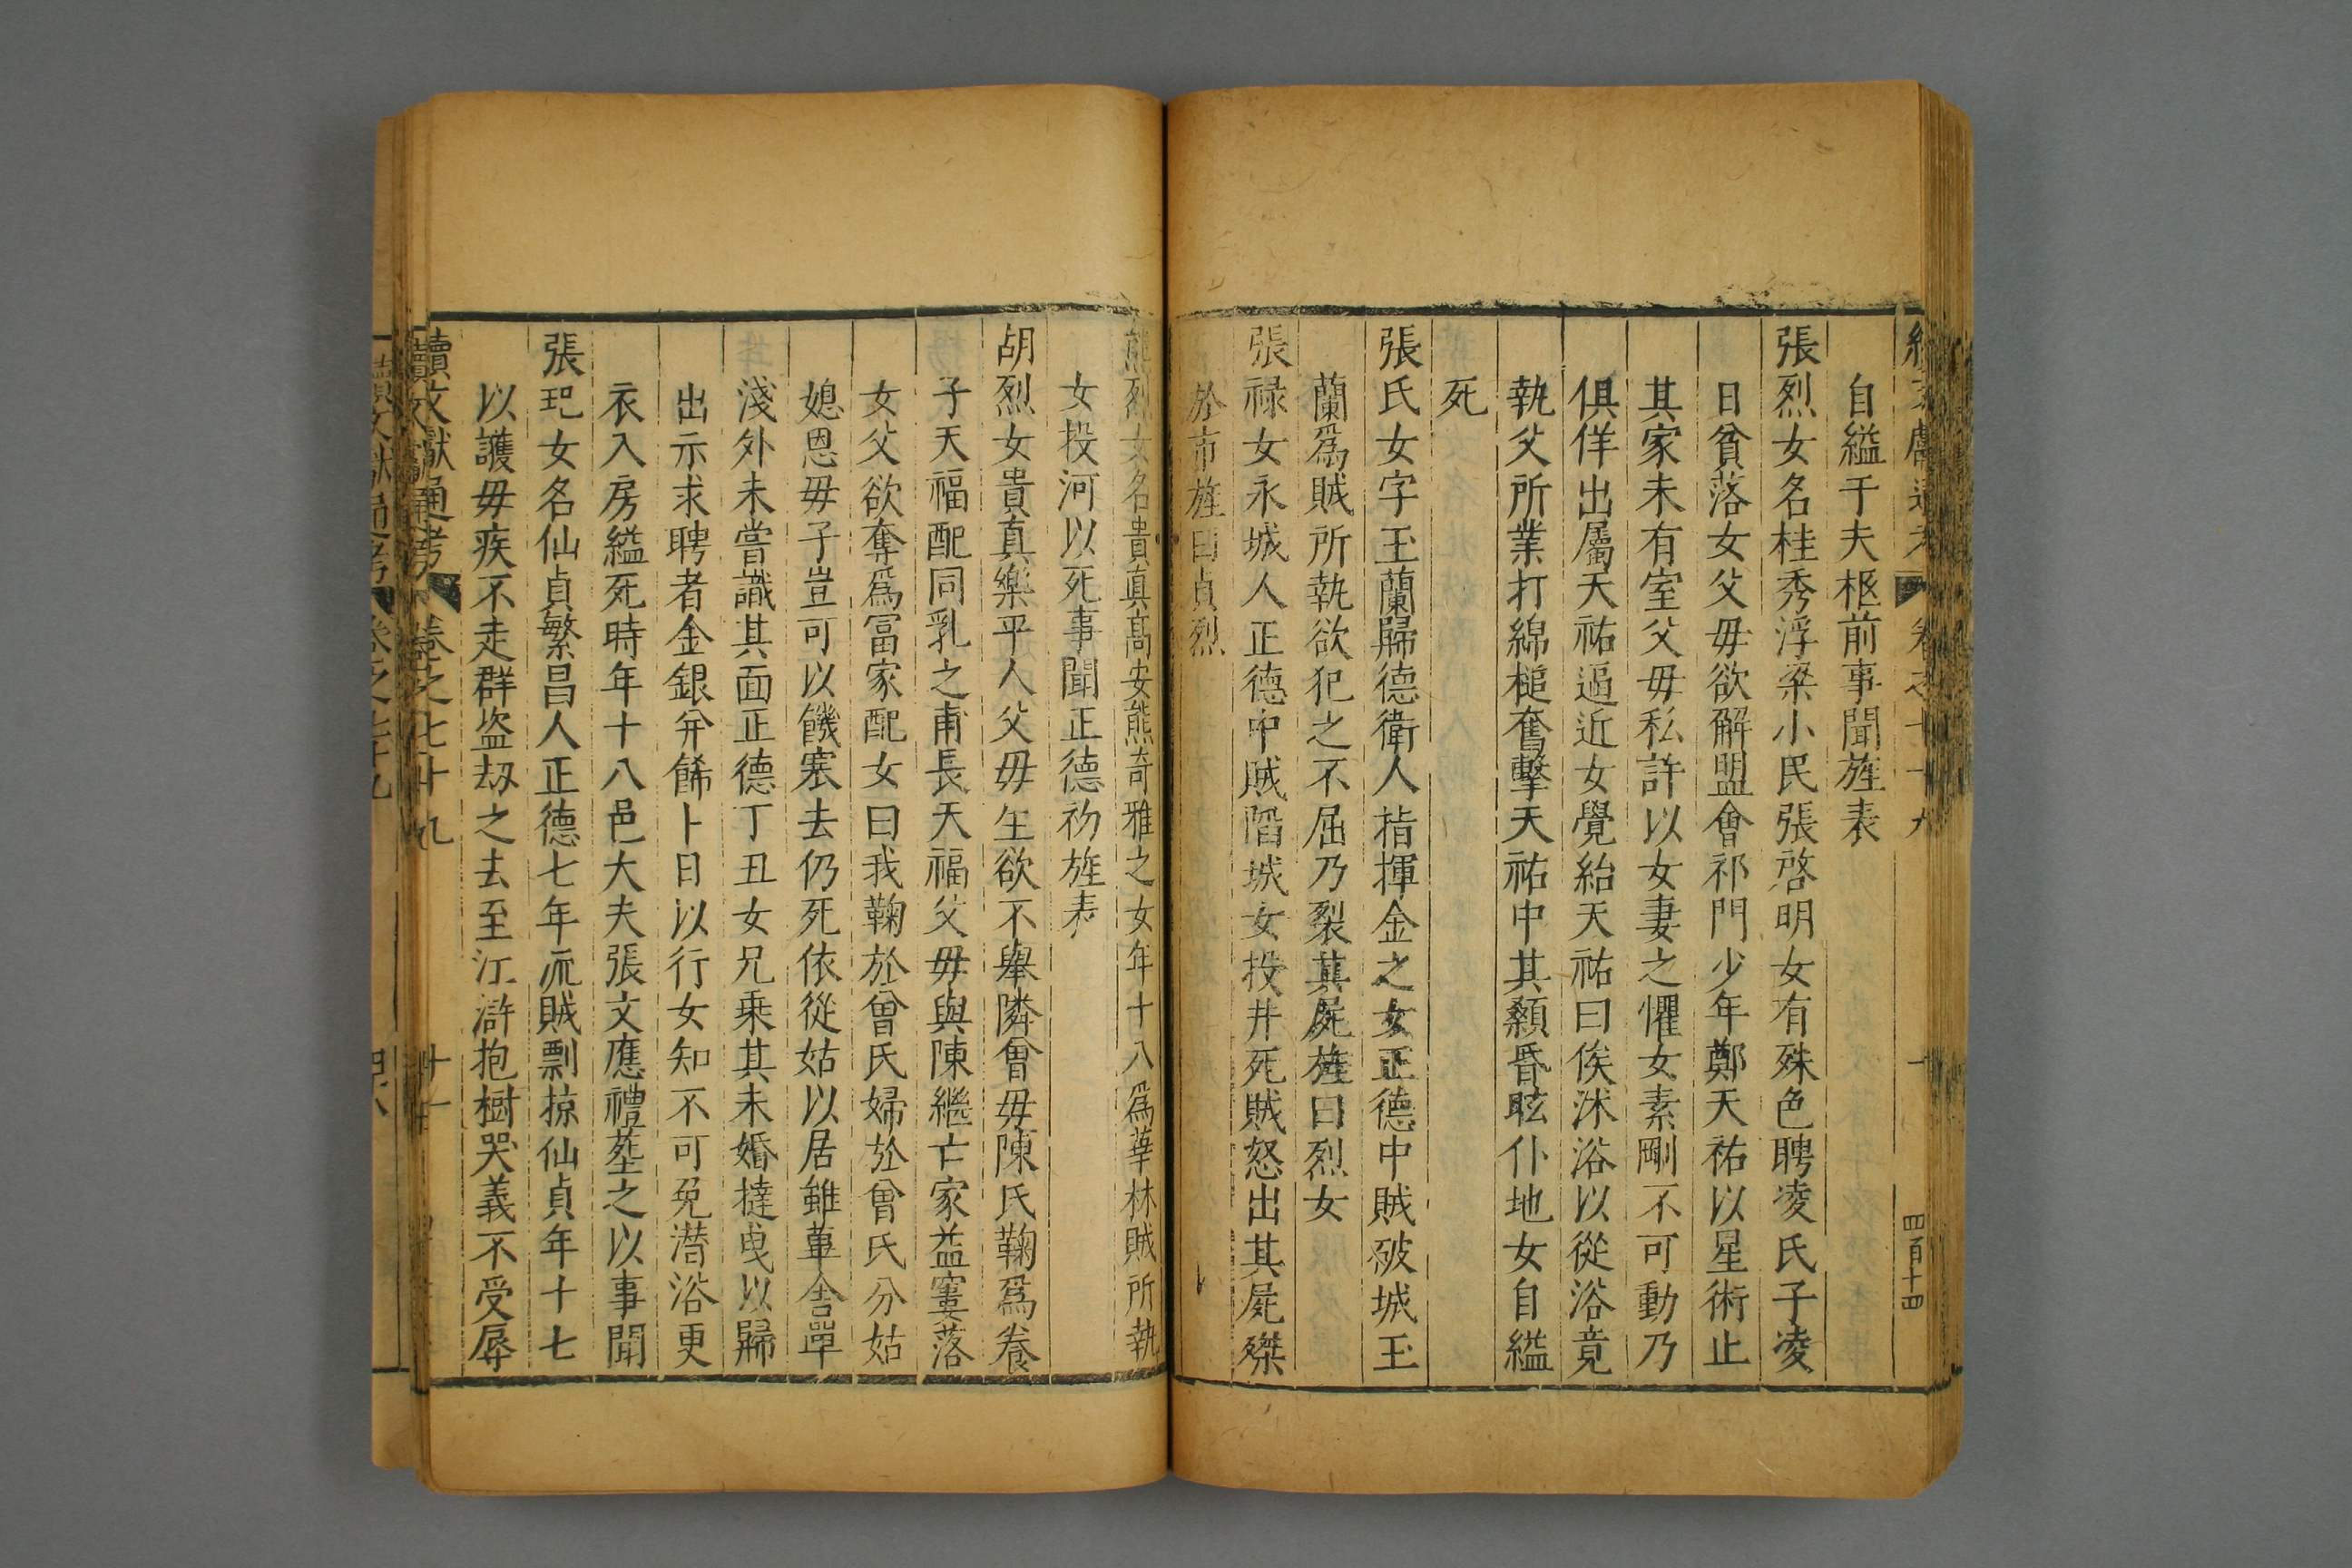 自縊于夫柩前事聞旌表
張烈女名桂秀浮梁小民張啓明女有殊色聘凌氏子凌
日貧落女父毋欲解盟會祁門少年鄭天祐以星術止
其家未有室父毋私許以女妻之懼女素剛不可動乃
俱佯出屬天祐逼近女覺紿天祐曰俟沐浴以從浴竟
執父所業打綿槌奮擊天祐中其顙昏眩仆地女自縊
死
張氏女字玉蘭歸德衛人指揮金之女正德中賊破城玉
蘭爲賊所執欲犯之不屈乃裂其屍旌曰烈女
張禄女永城人正德中賊陷城女投井死賊怒出其屍磔
於市旌曰貞烈
熊烈女名貴真高安熊奇雅之女年十八爲華林賊所執
女投河以死事聞正德初旌表
胡烈女貴真樂平人父毋生欲不舉隣曾毋陳氏鞠爲養
子天福配同乳之甫長天福父毋與陳繼亡家益窶落
女父欲奪爲冨家配女曰我鞠於曾氏婦於曾氏分姑
媳恩毋子豈可以饑寒去仍死依從姑以居雖蓽舍單
淺外未嘗識其面正德丁丑女兄乗其未婚撻曵以歸
出示求聘者金銀并餙卜日以行女知不可免潜浴更
衣入房縊死時年十八邑大夫張文應禮塟之以事聞
張𤣱女名仙貞繁昌人正德七年流賊剽掠仙貞年十七
以護毋疾不走群盗刼之去至江滸抱樹哭義不受辱
續文獻通考 卷之七十九 廿一